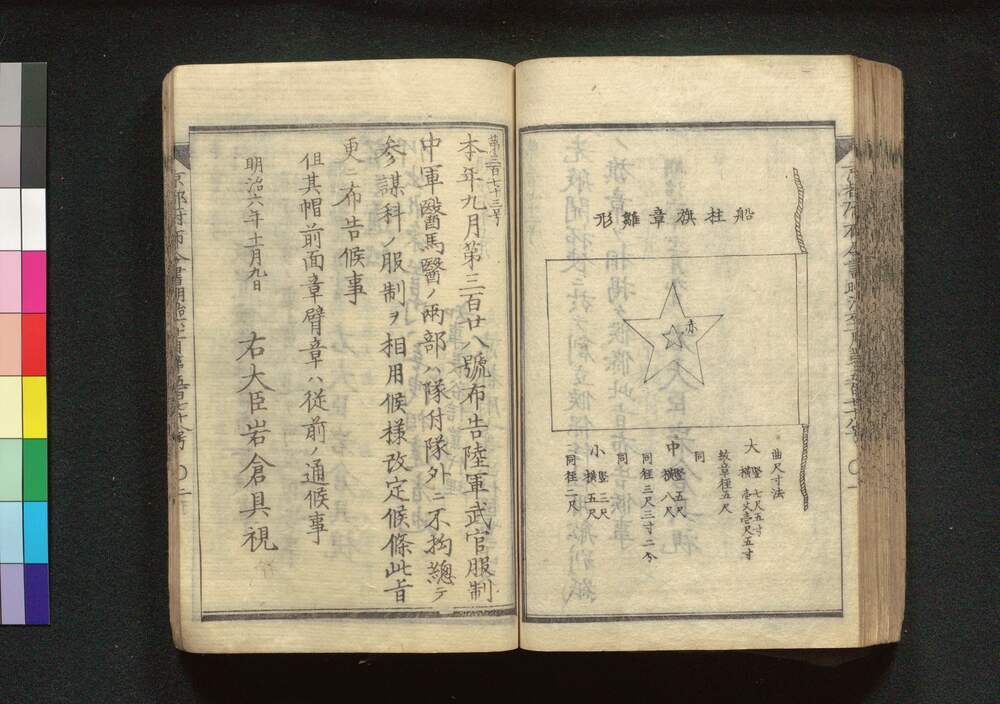 船柱旗章雛形
赤
曲尺寸法
大 竪 七尺五寸
横 壱丈壱尺五寸
紋章径五尺
同
中 竪五尺
横八尺
同径三尺三寸二分
同
小 竪三尺
横五尺
同径二尺
第三百七十三号
本年九月第三百廿八號布告陸軍武官服制
中軍醫馬醫ノ兩部ハ隊付隊外ニ不拘總テ
参謀科ノ服制ヲ相用候様改定候條此旨
更ニ布告候事
但其帽前面章臂章ハ従前ノ通候事
明治六年十一月九日
右大臣岩倉具視